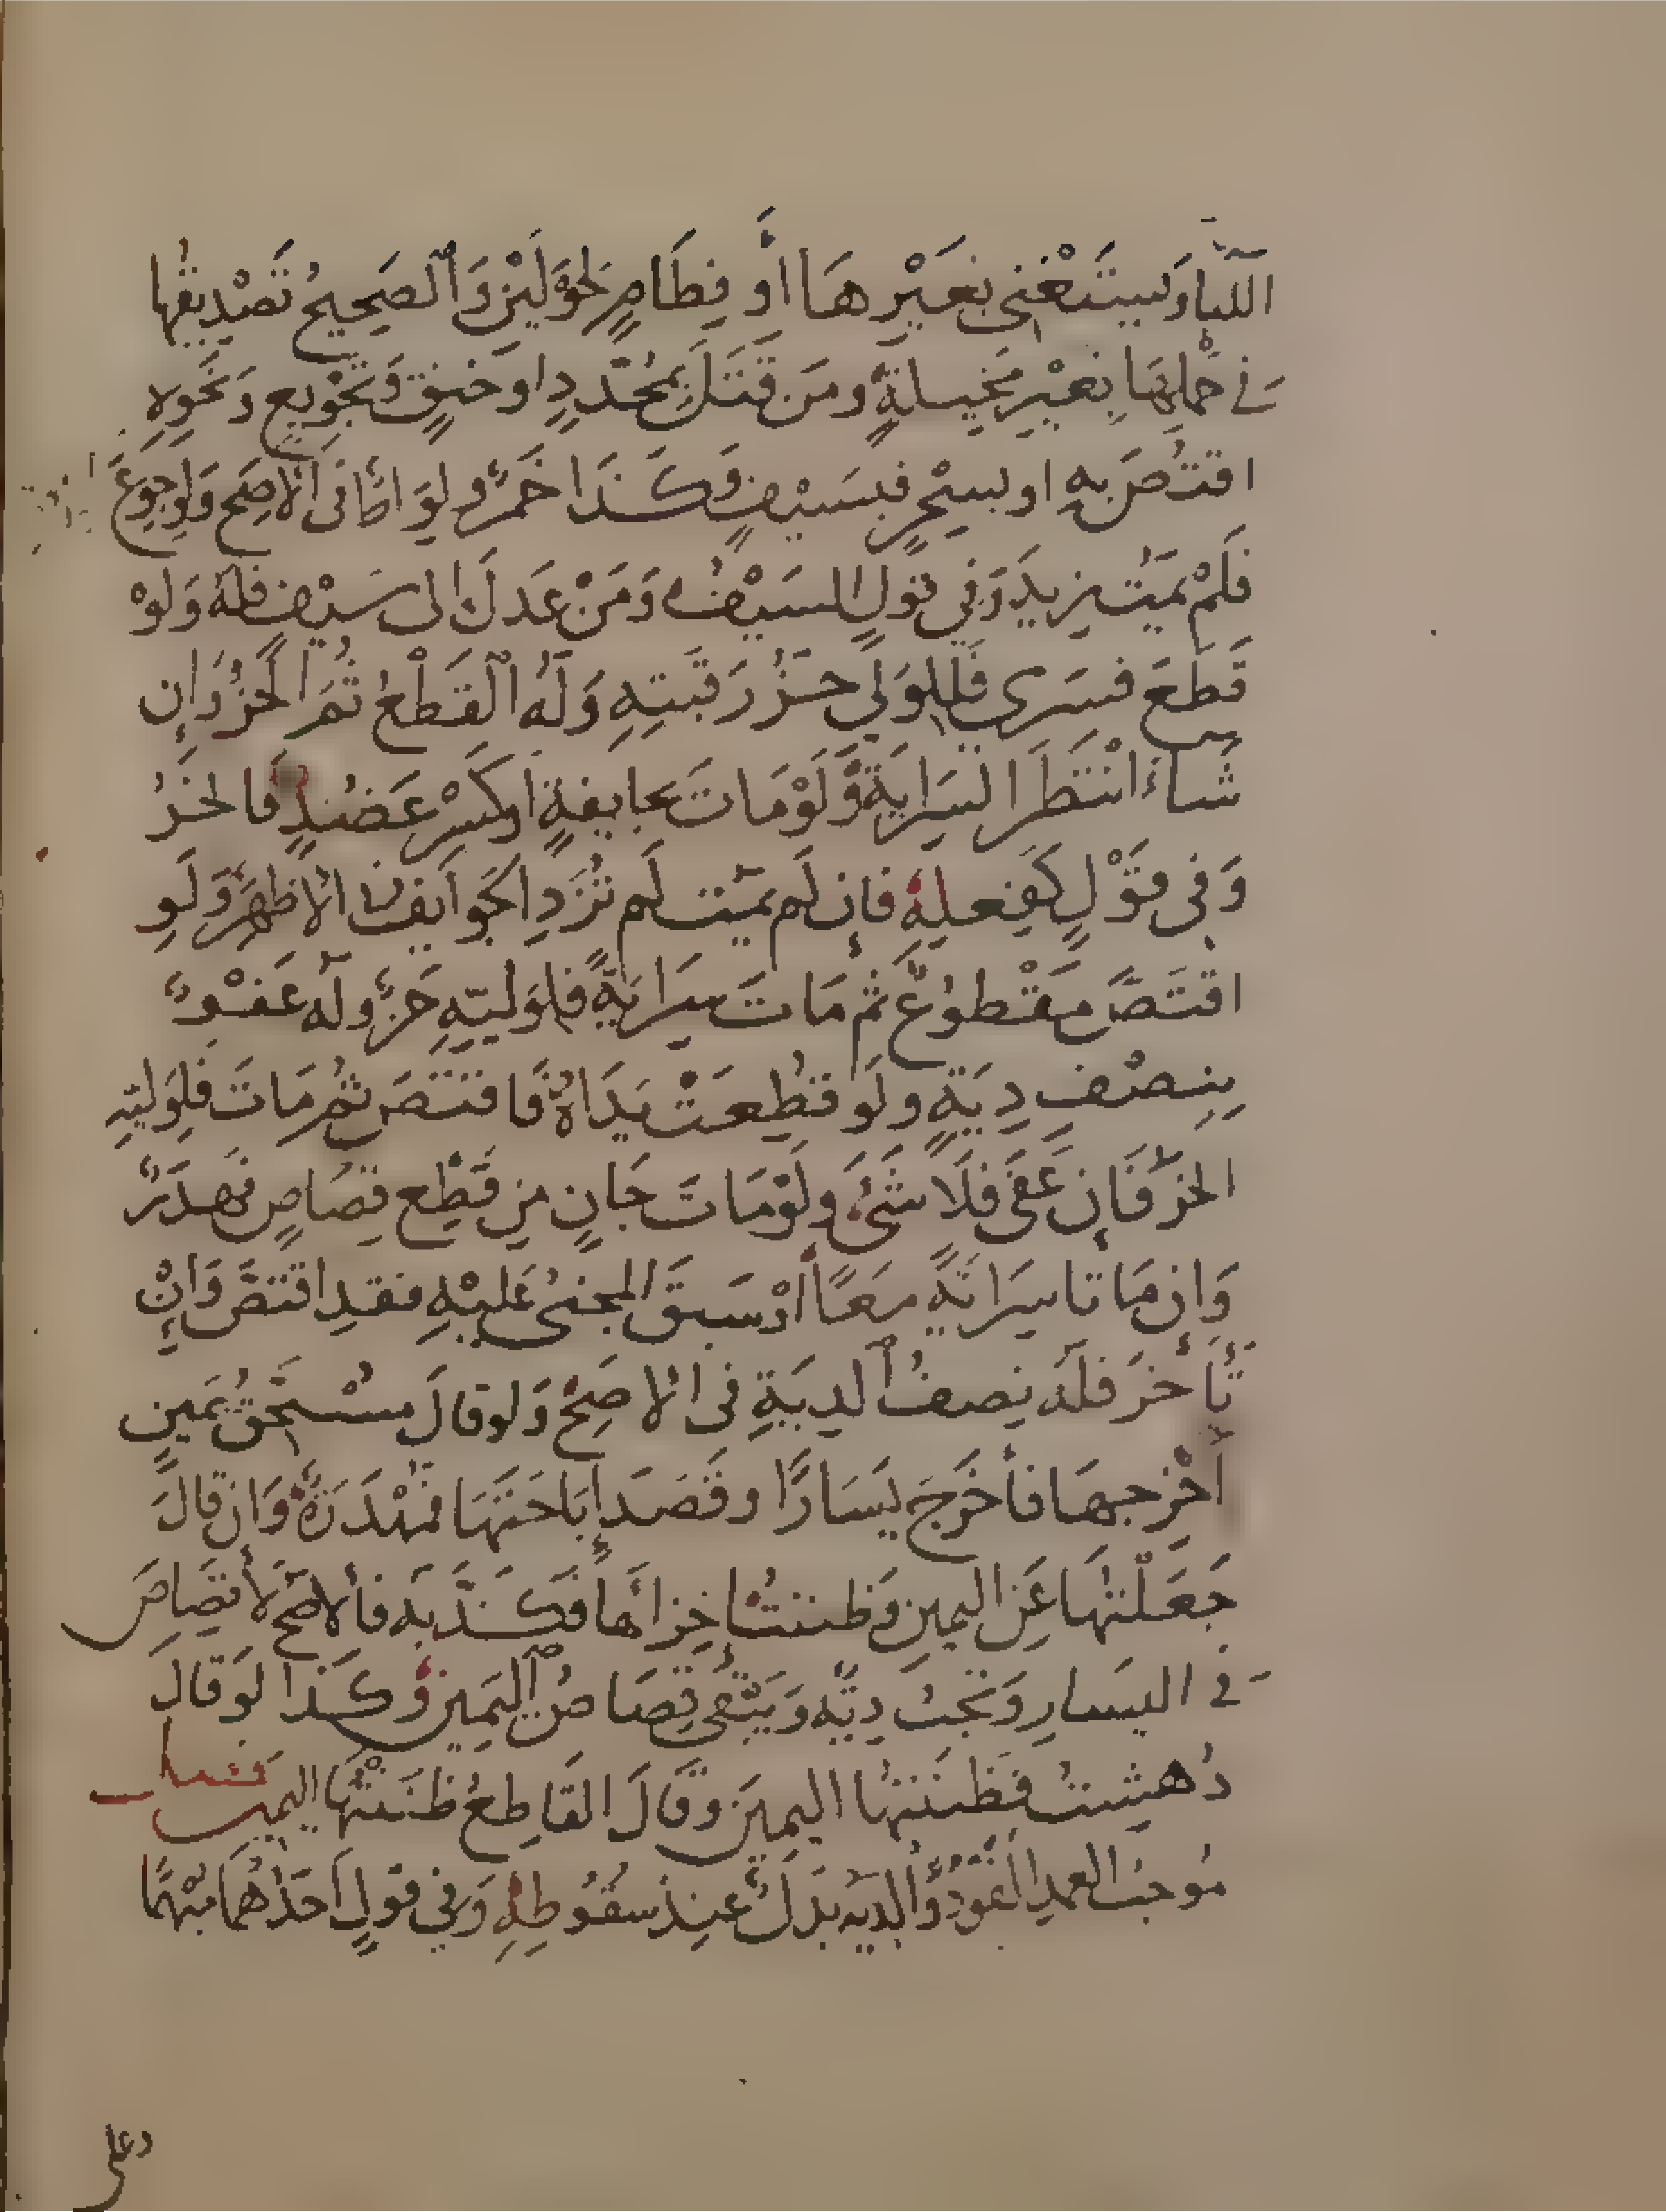 اللبأ ويستغني بغيرها أو فطام لحولين والصحيح تصديقها
في حملها بغير مخيلة ومن قتل بمحدد او خنق وتجويع ونحوه
اقتص به او بسحر فبسيف وكذا خمر ولواط في الاصح ولو جوع
فلم يمت زيد وفي قول السيف ومن عدل الى سيف فله ولو
قطع فسرى فللولي حز رقبته وله القطع ثم الحز وإن
شاء انتظر السراية ولو مات بجايفة او كسر عضد فالحز
وفي قول كفعله فإن لم يمت لم تزد الجوايف في الاظهر ولو
اقتص مقطوع ثم مات سراية فلوليه حز وله عفو
بنصف دية ولو قطعت يداه فاقتص ثم مات فلوليه
الحز فإن عفى فلا شئ ولو مات جان من قطع قصاص فهدر
وإن ماتا سراية معا أو سبق المجني عليه فقد اقتص وإن
تأخر فله نصف الدية في الاصح ولو قال مستحق يمين
أخرجها فأخرج يسارا وقصد إباحتها فمهدرة وان قال
جعلتها عن اليمين وظننت إجزاءها فكذبه فالأصح لا قصاص
في اليسار وتجب دية ويبقى قصاص اليمين وكذا لو قال
دهشت فظننتها اليمين وقال القاطع ظننتها اليمين فصل
موجب العمد القود والدية بدل عند سقوطه وفي قول احدهما مبهما
وعلى